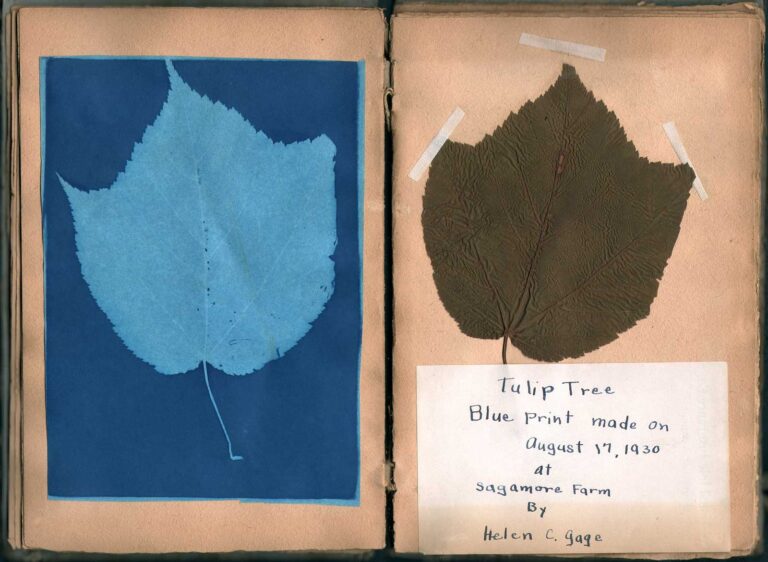 Tulip Tree
Blue Print made on
August 17, 1930
at
Sagamore Farm
By
Helen C. Gage